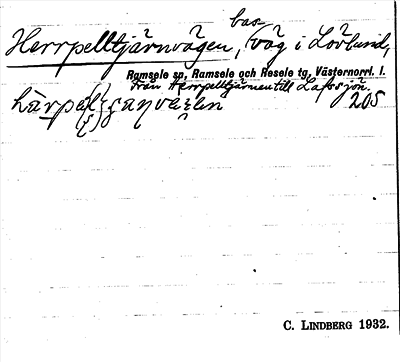 Herrpelltjärnvägen, bas (väg i Lövlund,
Ramsele sn, Ramsele och Resele tg, Västernorrl. l.
Från Herrpelltjärnen till Lafssjön.
205
C. LINDBERG 1932.